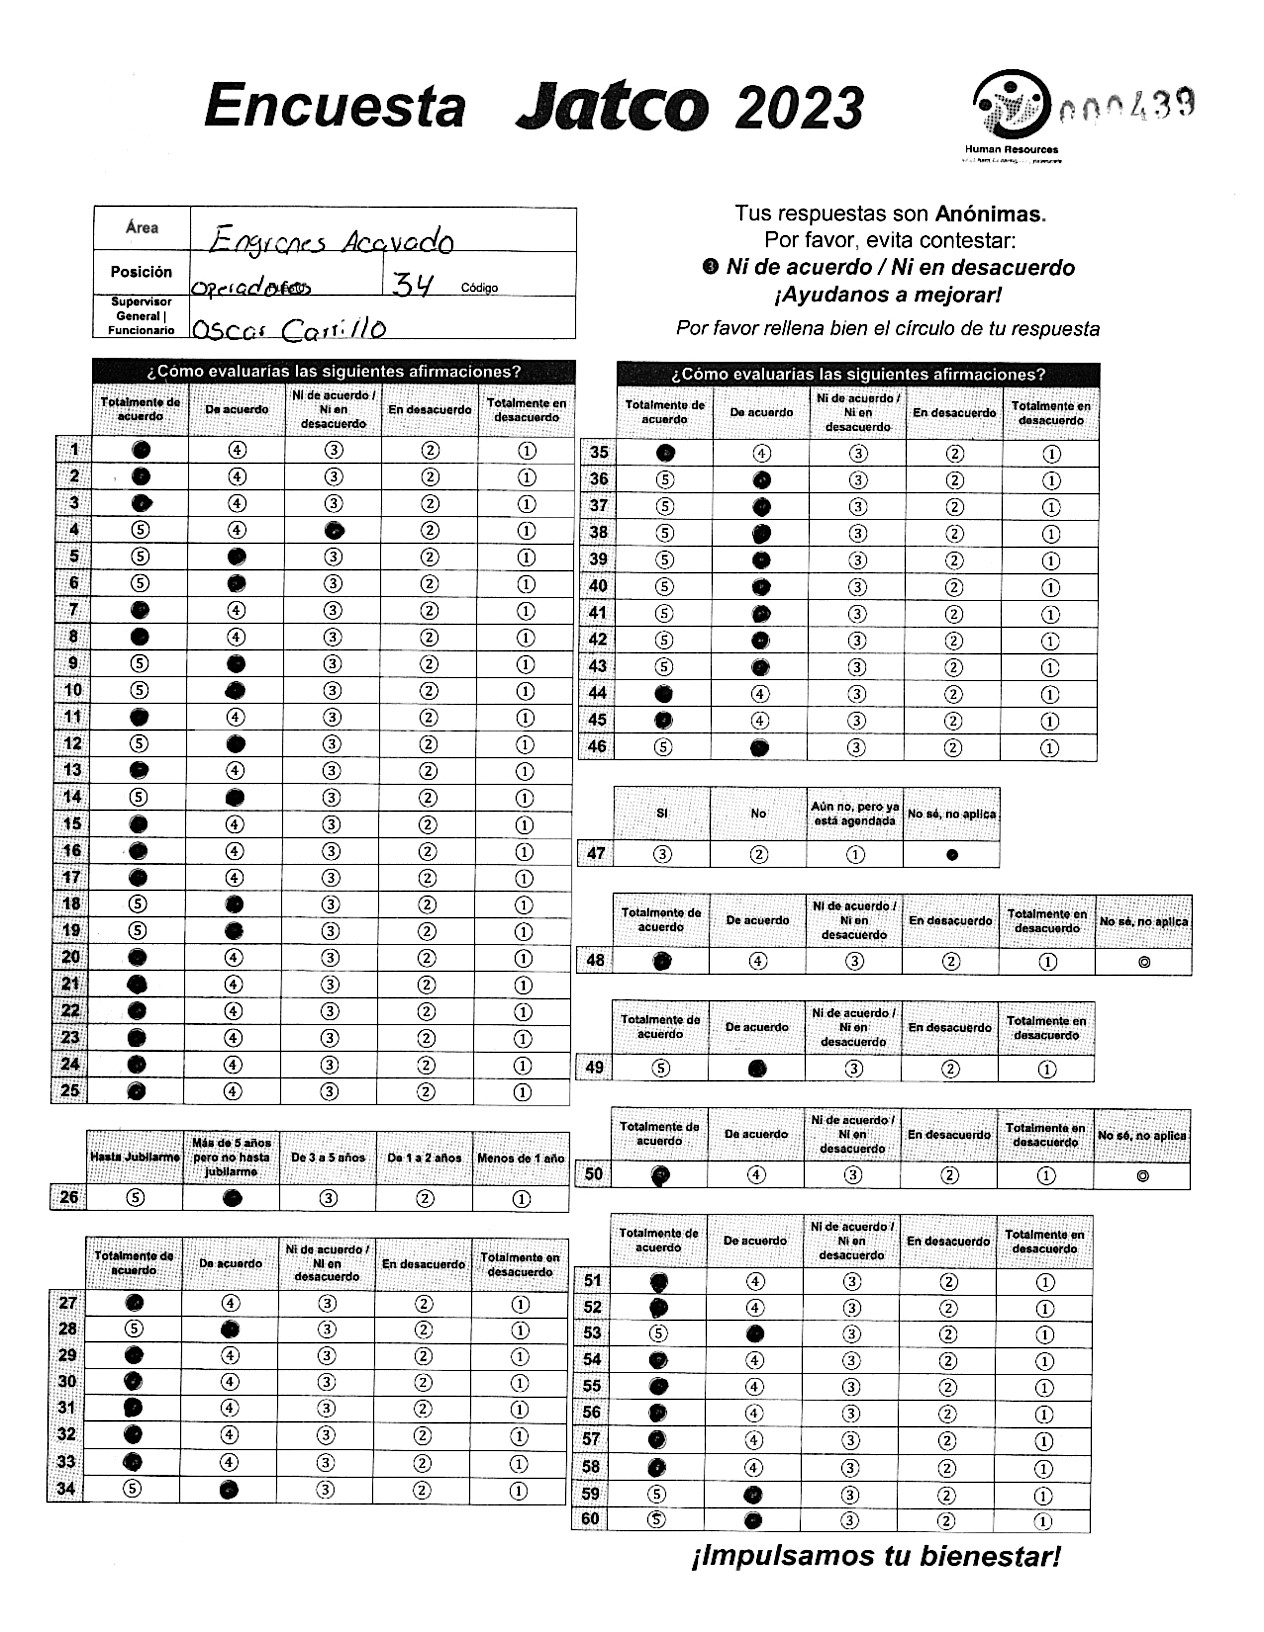 Encuesta Jatco 2023
Human Resources
000439
Área Engranes Acavado
Posición Operadores 34 Código
Supervisor General | Funcionario Oscar Carrillo
Tus respuestas son Anónimas.
Por favor, evita contestar:
❸ Ni de acuerdo / Ni en desacuerdo
¡Ayudanos a mejorar!
Por favor rellena bien el círculo de tu respuesta
¿Cómo evaluarias las siguientes afirmaciones?
Totalmente de acuerdo De acuerdo Ni de acuerdo / Ni en desacuerdo En desacuerdo Totalmente en desacuerdo
1 ● ④ ③ ② ①
2 ● ④ ③ ② ①
3 ● ④ ③ ② ①
4 ⑤ ④ ● ② ①
5 ⑤ ● ③ ② ①
6 ⑤ ● ③ ② ①
7 ● ④ ③ ② ①
8 ● ④ ③ ② ①
9 ⑤ ● ③ ② ①
10 ⑤ ● ③ ② ①
11 ● ④ ③ ② ①
12 ⑤ ● ③ ② ①
13 ● ④ ③ ② ①
14 ⑤ ● ③ ② ①
15 ● ④ ③ ② ①
16 ● ④ ③ ② ①
17 ● ④ ③ ② ①
18 ⑤ ● ③ ② ①
19 ⑤ ● ③ ② ①
20 ● ④ ③ ② ①
21 ● ④ ③ ② ①
22 ● ④ ③ ② ①
23 ● ④ ③ ② ①
24 ● ④ ③ ② ①
25 ● ④ ③ ② ①
Hasta Jubilarme Más de 5 años pero no hasta jubilarme De 3 a 5 años De 1 a 2 años Menos de 1 año
26 ⑤ ● ③ ② ①
Totalmente de acuerdo De acuerdo Ni de acuerdo / Ni en desacuerdo En desacuerdo Totalmente en desacuerdo
27 ● ④ ③ ② ①
28 ⑤ ● ③ ② ①
29 ● ④ ③ ② ①
30 ● ④ ③ ② ①
31 ● ④ ③ ② ①
32 ● ④ ③ ② ①
33 ● ④ ③ ② ①
34 ⑤ ● ③ ② ①
¿Cómo evaluarias las siguientes afirmaciones?
Totalmente de acuerdo De acuerdo Ni de acuerdo / Ni en desacuerdo En desacuerdo Totalmente en desacuerdo
35 ● ④ ③ ② ①
36 ⑤ ● ③ ② ①
37 ⑤ ● ③ ② ①
38 ⑤ ● ③ ② ①
39 ⑤ ● ③ ② ①
40 ⑤ ● ③ ② ①
41 ⑤ ● ③ ② ①
42 ⑤ ● ③ ② ①
43 ⑤ ● ③ ② ①
44 ● ④ ③ ② ①
45 ● ④ ③ ② ①
46 ⑤ ● ③ ② ①
Si No Aún no, pero ya está agendada No sé, no aplica
47 ③ ② ① ●
Totalmente de acuerdo De acuerdo Ni de acuerdo / Ni en desacuerdo En desacuerdo Totalmente en desacuerdo No sé, no aplica
48 ● ④ ③ ② ① ⓪
Totalmente de acuerdo De acuerdo Ni de acuerdo / Ni en desacuerdo En desacuerdo Totalmente en desacuerdo
49 ⑤ ● ③ ② ①
Totalmente de acuerdo De acuerdo Ni de acuerdo / Ni en desacuerdo En desacuerdo Totalmente en desacuerdo No sé, no aplica
50 ● ④ ③ ② ① ⓪
Totalmente de acuerdo De acuerdo Ni de acuerdo / Ni en desacuerdo En desacuerdo Totalmente en desacuerdo
51 ● ④ ③ ② ①
52 ● ④ ③ ② ①
53 ⑤ ● ③ ② ①
54 ● ④ ③ ② ①
55 ● ④ ③ ② ①
56 ● ④ ③ ② ①
57 ● ④ ③ ② ①
58 ● ④ ③ ② ①
59 ⑤ ● ③ ② ①
60 ⑤ ● ③ ② ①
¡Impulsamos tu bienestar!